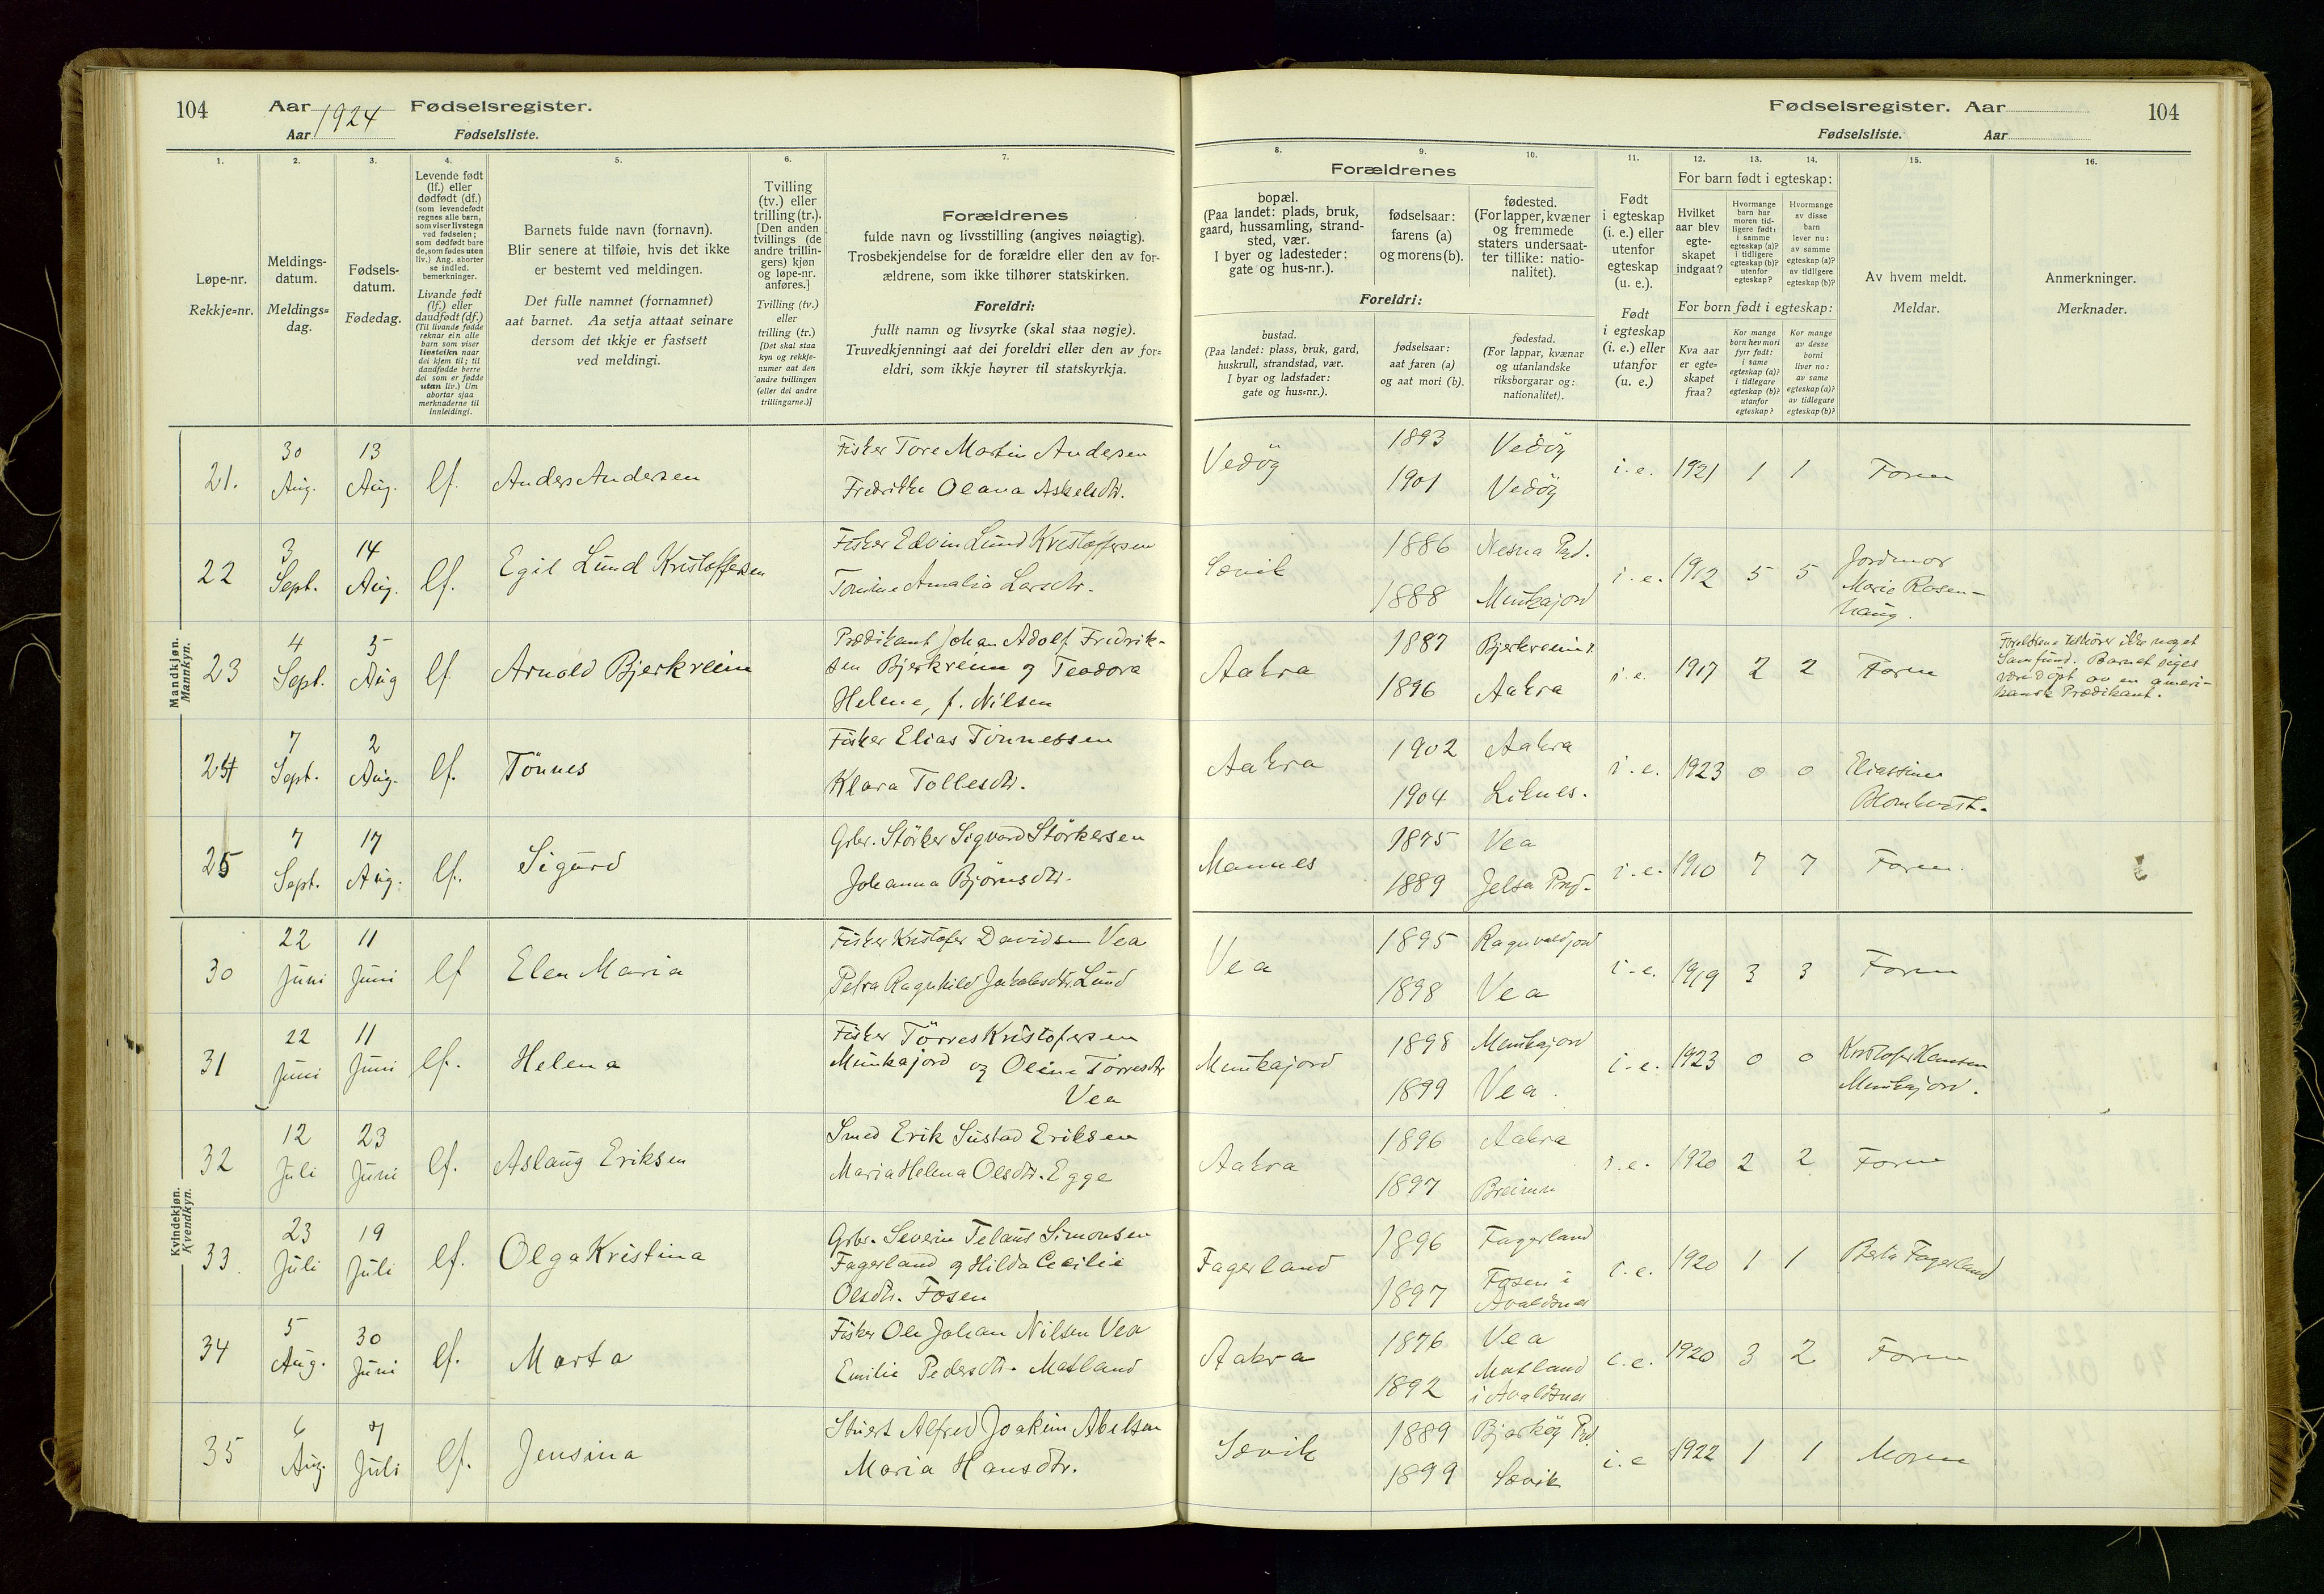 104 Aar 1924 Fødselsregister.
Aar Fødselsliste.
Fødselsregister. Aar 104
Fødselsliste. Aar
1. 2. 3. 4. 5. 6. 7. 8. 9. 10. 11. 12. 13. 14. 15. 16.
Løpe-nr.
Rekkje=nr.
Meldings-
datum.
Meldings=
dag.
Fødsels-
datum.
Fødedag.
Levende født
(lf.) eller
dødfødt (df.)
(som levendefødt
regnes alle barn,
som viser livstegn
ved fødselen;
som dødfødt bare
de, som fødes uten
liv.) Ang. aborter
se indled.
bemerkninger.
Livande født
(lf.) eller
daudfødt (df.)
(Til livande fødde
reknar ein alle
barn som viser
livsteikn naar
dei kjem til; til
daudfødde berre
dei som er fødde
utan liv.) Um
abortar sjaa
merknaderne til
innleidingi.
Barnets fulde navn (fornavn).
Blir senere at tilføie, hvis det ikke
er bestemt ved meldingen.
Det fulle namnet (fornamnet)
aat barnet. Aa setja attaat seinare
dersom det ikkje er fastsett
ved meldingi.
Tvilling
(tv.) eller
trilling (tr.).
[Den anden
tvillings (de
andre trillin-
gers) kjøn
og løpe-nr.
anføres.]
Tvilling (tv.)
eller
trilling (tr.)
[Det skal staa
kyn og rekkje-
numer aat den
andre tvillingen
(eller dei andre
trillingarne.)]
Forældrenes
fulde navn og livsstilling (angives nøiagtig).
Trosbekjendelse for de forældre eller den av for-
ældrene, som ikke tilhører statskirken.
Foreldri:
fullt namn og livsyrke (skal staa nøgje).
Truvedkjenningi aat dei foreldri eller den av for=
eldri, som ikkje høyrer til statskyrkja.
Forældrenes
bopæl.
(Paa landet: plads, bruk,
gaard, hussamling, strand-
sted, vær.
I byer og ladesteder:
gate og hus-nr.).
fødselsaar:
farens (a)
og morens (b).
fødested.
(For lapper, kvæner
og fremmede
staters undersaat-
ter tillike: natio-
nalitet).
Foreldri:
bustad.
(Paa landet: plass, bruk, gard,
huskrull, strandstad, vær.
I byar og ladstader:
gate og hus=nr.).
fødselsaar:
aat faren (a)
og aat mori (b).
fødestad.
(For lappar, kvænar
og utanlandske
riksborgarar og:
nationalitet).
Født
i egteskap
(i. e.) eller
utenfor
egteskap
(u. e.).
Født
i egteskap
(i. e.) eller
utanfor
(u. e.)
For barn født i egteskap:
Hvilket
aar blev
egte-
skapet
indgaat?
Hvormange
barn har
moren tid-
ligere født:
i samme
egteskap (a)?
i tidligere
egteskap (b)?
utenfor
egteskap?
Hvormange
av disse
barn
lever nu:
av samme
egteskap (a)?
av tidligere
egteskap (b)?
For born født i egteskap:
Kva aar
er egte=
skapet
fraa?
Kor mange
born hev mori
fyrr født:
i same
egteskap (a)?
i tidlegare
egteskap (b)?
utanfor
egteskap?
Kor mange
av desse
borni
liver no:
av same
egteskap (a)?
av tidlegare
egteskap (b)?
Av hvem meldt.
Meldar.
Anmerkninger.
Merknader.
Mandkjøn.
Mannkyn.
21. 30 Aug. 13 Aug. lf. Anders Andersen
Fisker Tore Martin Andersen
Fredrikke Olava Askelsdtr.
Vedöy 1893 Vedöy
1901 Vedöy
i. e. 1921 1 1 Faren
22 3 Sept. 14 Aug. lf. Egil Lund Kristoffersen
Fisker Edvin Lund Kristoffersen
Tomine Amalia Larsdtr.
Sævik 1886 Nesna Prd.
1888 Munkajord
i. e. 1912 5 5 Jordmor
Marie Rosen-
haug.
23 4 Sept. 5 Aug lf. Arnold Bjerkreim
Prædikant Johan Adolf Fredrik-
sen Bjerkreim og Teodora
Helene, f. Nilsen
Aakra 1887 Bjerkreim
1896 Aakra
i. e. 1917 2 2 Faren
Foreldrene tilhører ikke noget
Samfund. Barnet siges
være döpt av en ameri-
kansk Prædikant.
24 7 Sept. 2 Aug. lf. Tönnes
Fisker Elias Tönnessen
Klara Tollesdtr.
Aakra 1902 Aakra
1904 Liknes.
i. e. 1923 0 0 Eliassine
Blomkvist.
25 7 Sept. 17 Aug. lf. Sigurd
Grbr. Störker Sigvard Störkersen
Johanna Björnsdtr.
Mannes 1875 Vea
1889 Jelsa Prd.
i. e. 1910 7 7 Faren.
Kvindekjøn.
Kvendkyn.
30 22 Juni 11 Juni lf Elen Maria
Fisker Kristofer Davidsen Vea
Petra Ragnhild Jakobsdtr. Lund
Vea 1895 Ragnvaldjord
1898 Vea
i. e. 1919 3 3 Faren
31 22 Juni 11 Juni lf. Helena
Fisker Törres Kristofersen
Munkajord og Oline Törresdtr
Vea
Munkajord 1898 Munkajord
1899 Vea.
i. e. 1923 0 0 Kristofer Hansen
Munkajord.
32 12 Juli 23 Juni lf. Aslaug Eriksen
Smed Erik Sustad Eriksen
Maria Helena Olsdtr. Egge
Aakra 1896 Aakra
1897 Breimn
i. e. 1920 2 2 Faren
33 23 Juli 19 Juli lf. Olga Kristina
Grbr. Severin Telaus Simonsen
Fagerland og Hilda Cecilie
Olsdtr. Fosen
Fagerland 1896 Fagerland
1897 Fosen i
Avaldsnes
i. e. 1920 1 1 Berta Fagerland
34 5 Aug. 30 Juni lf. Marta
Fisker Ole Johan Nilsen Vea
Emilie Pedersdtr. Matland
Aakra 1876 Vea
1892 Matland
i Avaldsnes
i. e. 1920 3 2 Faren
35 6 Aug. 7 Juli lf. Jensina
Stuert Alfred Joakim Abelsen
Maria Hansdtr.
Sævik 1889 Bjarköy Prd.
1899 Sævik
i. e 1922 1 1 Moren